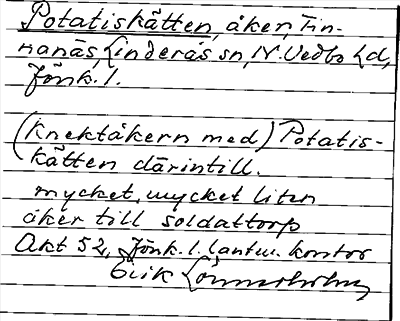 Potatiskätten, åker, Fin-
nanäs, Linderås sn, N. Vedbo hd,
Jönk. l.
(Knektåkern med) Potatis-
kätten därintill.
mycket, mycket liten
åker till soldattorp
Akt 52, Jönk. l. lantm. kontor
Erik